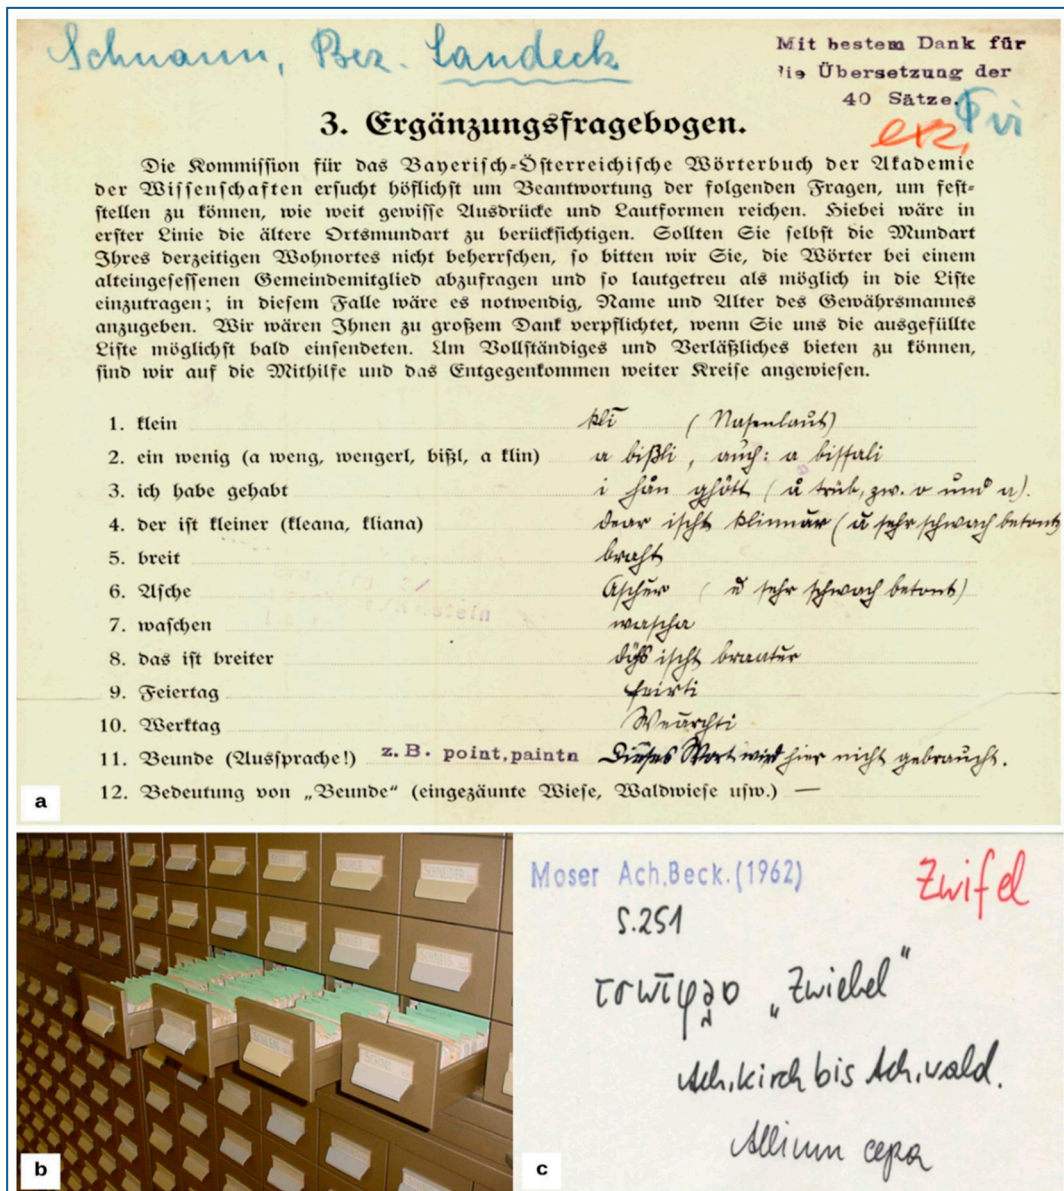 Schnann, Bez. Landeck
Mit bestem Dank für
die Übersetzung der
40 Sätze.
3. Ergänzungsfragebogen.
Die Kommission für das Bayerisch-Österreichische Wörterbuch der Akademie
der Wissenschaften ersucht höflichst um Beantwortung der folgenden Fragen, um fest-
stellen zu können, wie weit gewisse Ausdrücke und Lautformen reichen. Hiebei wäre in
erster Linie die ältere Ortsmundart zu berücksichtigen. Sollten Sie selbst die Mundart
Ihres derzeitigen Wohnortes nicht beherrschen, so bitten wir Sie, die Wörter bei einem
alteingesessenen Gemeindemitglied abzufragen und so lautgetreu als möglich in die Liste
einzutragen; in diesem Falle wäre es notwendig, Name und Alter des Gewährsmannes
anzugeben. Wir wären Ihnen zu großem Dank verpflichtet, wenn Sie uns die ausgefüllte
Liste möglichst bald einsendeten. Um Vollständiges und Verläßliches bieten zu können,
sind wir auf die Mithilfe und das Entgegenkommen weiter Kreise angewiesen.
1. klein klī (Nasenlaut)
2. ein wenig (a weng, wengerl, bißl, a klin) a bißli, auch: a bissali
3. ich habe gehabt i hån ghött (å trüb, zw. o und a).
4. der ist kleiner (kleana, kliana) dear ischt klinnar (a sehr schwach betont
5. breit braht
6. Asche (ŭ sehr schwach betont)
7. waschen wascha
8. das ist breiter ischt
9. Feiertag feirti
10. Werktag Weārchti
11. Beunde (Aussprache!) z.B. point, paintn Dieses Wort wird hier nicht gebraucht.
12. Bedeutung von „Beunde“ (eingezäunte Wiese, Waldwiese usw.) —
a
SCHNEIDER
b
Moser Ach.Beck.(1962)
Zwifel
S.251
„Zwiebel“
Ach.kirch bis Ach.wald.
Allium cepa
c